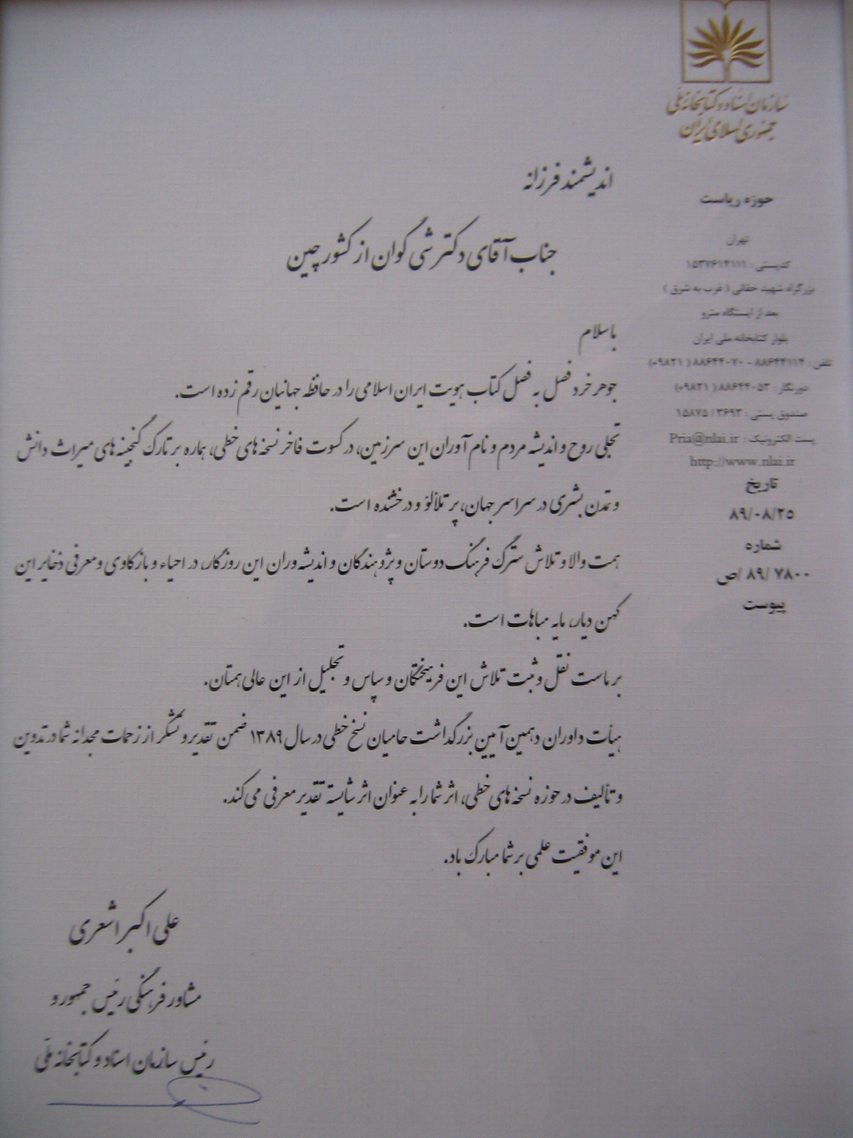 سازمان اسناد و کتابخانه ملی
جمهوری اسلامی ایران
حوزه ریاست
تهران
کدپستی : ۱۵۳۷۶۱۴۱۱۱
بزرگراه شهید حقانی ( غرب به شرق )
بعد از ایستگاه مترو
بلوار کتابخانه ملی ایران
تلفن : ۸۸۶۴۴۱۱۴ - ۸۸۶۴۴۰۷۰ ( ۰۹۸۲۱)
دورنگار : ۸۸۶۴۴۰۵۳ ( ۰۹۸۲۱)
صندوق پستی : ۳۶۹۳ / ۱۵۸۷۵
پست الکترونیک : Pria@nlai.ir
http://www.nlai.ir
تاریخ
۸۹/۰۸/۲۵
شماره
۷۸۰۰ /۸۹ /ص
پیوست
اندیشمند فرزانه
جناب آقای دکتر شی گوان از کشور چین
با سلام
جوهر خرد فصل به فصل کتاب هویت ایران اسلامی را در حافظه جهانیان رقم زده است.
تجلی روح و اندیشه مردم و نام آوران این سرزمین، در کسوت فاخر نسخه های خطی، هماره بر تارک گنجینه های میراث دانش
و تمدن بشری در سراسر جهان، پر تلألؤ و درخشنده است.
همت والا و تلاش سترگ فرهنگ دوستان و پژوهندگان و اندیشه وران این روزگار، در احیاء و بازکاوی و معرفی ذخایر این
کهن دیار، مایه مباهات است.
بر ماست نقل و ثبت تلاش این فرهیختگان و سپاس و تجلیل از این عالی همتان.
هیأت داوران دهمین آیین بزرگداشت حامیان نسخ خطی در سال ۱۳۸۹ ضمن تقدیر و تشکر از زحمات مجدانه شما در تدوین
و تألیف در حوزه نسخه های خطی، اثر شما را به عنوان اثر شایسته تقدیر معرفی می کند.
این موفقیت علمی بر شما مبارک باد.
علی اکبر اشعری
مشاور فرهنگی رئیس جمهور و
رئیس سازمان اسناد و کتابخانه ملی